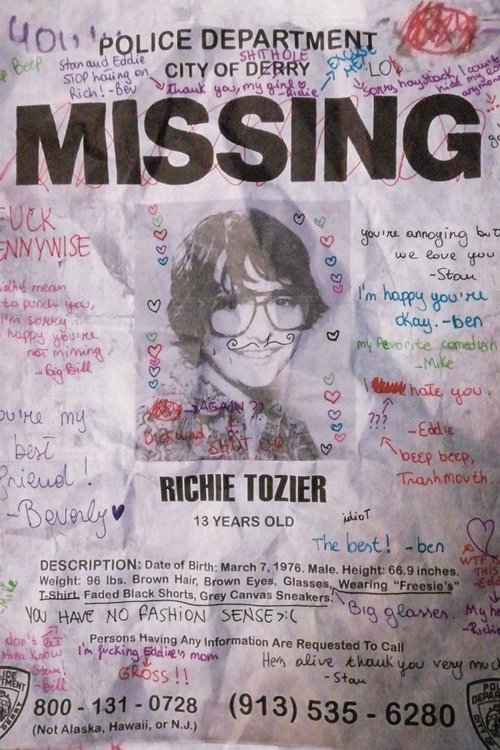 YOU!!
POLICE DEPARTMENT
CITY OF DERRY
SHITHOLE
Beep
Stan and Eddie
STOP hating on
Rich! - Bev
thank you, my girl
- Richie
EXCUSE
ME?
LOL
sorry, haystack, I can't
hide my
MISSING
FUCK
ENNYWISE
didn't mean
to punch you,
I'm sorry...
happy you're
not missing.
- Big Bill
you're annoying but
we love you
- Stan
I'm happy you're
okay. - ben
my favorite comedian
- Mike
I hate you.
???
- Eddie
beep beep,
Trashmouth.
you're my
best
friend!
- Beverly
AGAIN??
SHUT UP
RICHIE TOZIER
13 YEARS OLD
idioT
The best! - ben
DESCRIPTION: Date of Birth: March 7, 1976. Male. Height: 66.9 inches.
Weight: 96 lbs. Brown Hair, Brown Eyes, Glasses, Wearing "Freesie's"
T-Shirt, Faded Black Shorts, Grey Canvas Sneakers.
YOU HAVE NO FASHION SENSE >:(
Big glasses.
Persons Having Any Information Are Requested To Call
don't let
him know
Stan!
- Bill
I'm fucking Eddie's mom
GROSS!!
He's alive thank you very much
- Stan
800 - 131 - 0728
(913) 535 - 6280
(Not Alaska, Hawaii, or N.J.)